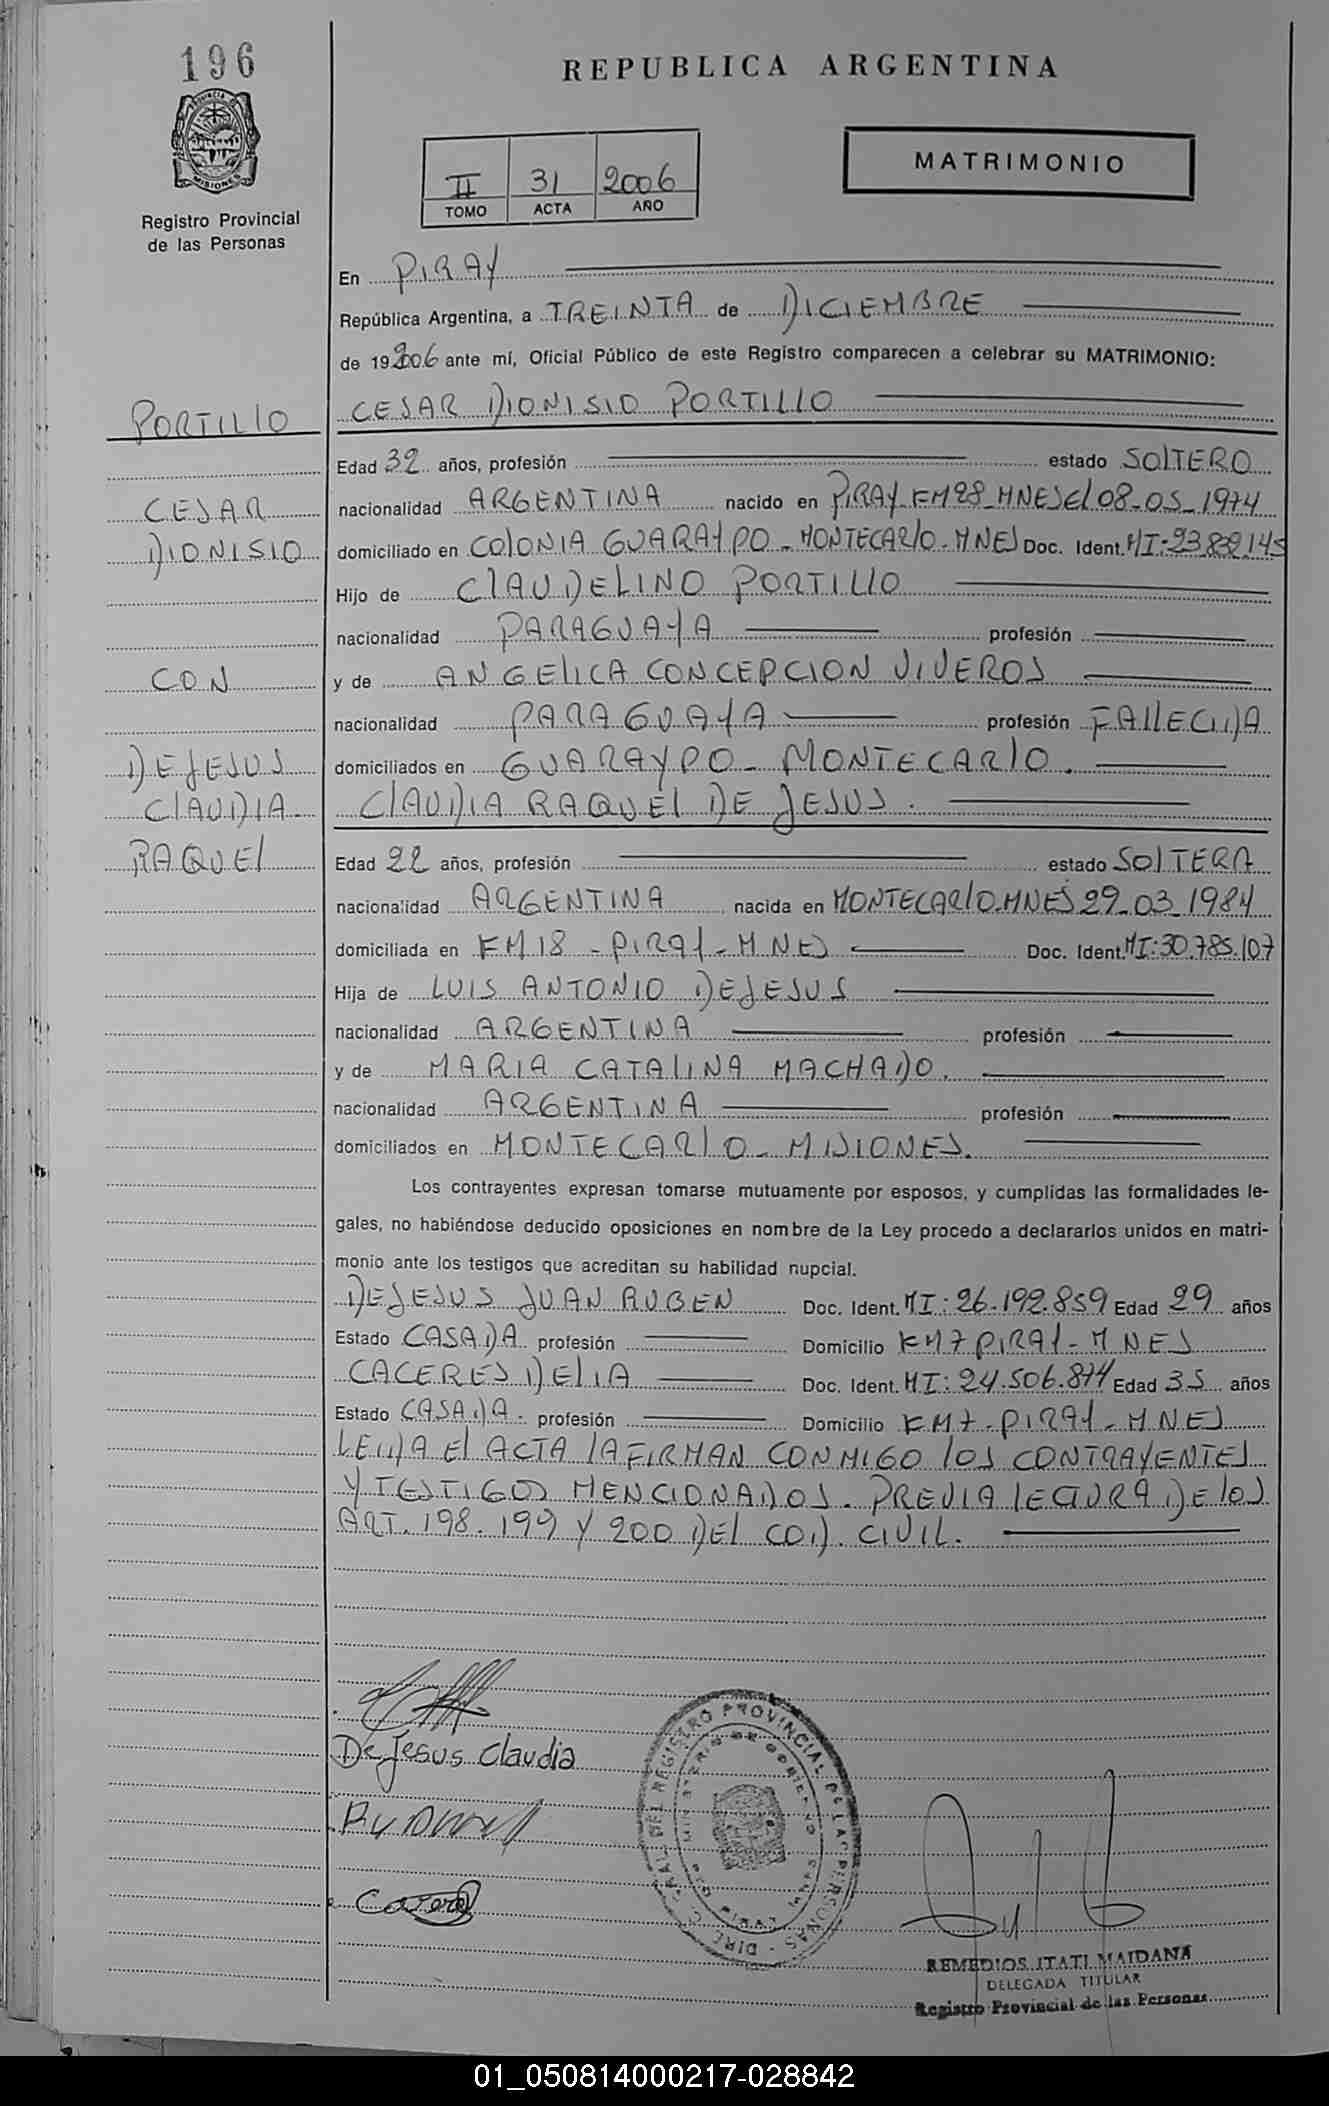 196
REPUBLICA ARGENTINA
PROVINCIA DE
MISIONES
Registro Provincial
de las Personas
MATRIMONIO
II 31 2006
TOMO ACTA AÑO
En PIRAY
República Argentina, a TREINTA de DICIEMBRE
de 19 2006 ante mí, Oficial Público de este Registro comparecen a celebrar su MATRIMONIO:
PORTILLO
CESAR DIONISIO PORTILLO
Edad 32 años, profesión estado SOLTERO
CESAR
nacionalidad ARGENTINA nacido en PIRAY KM28 MNES el 08-05-1974
DIONISIO
domiciliado en COLONIA GUARAYPO - MONTECARLO - MNES Doc. Ident. MI: 23.882.145
Hijo de CLAUDELINO PORTILLO
nacionalidad PARAGUAYA profesión
CON
y de ANGELICA CONCEPCION VIVEROS
nacionalidad PARAGUAYA profesión FALLECIDA
DEJESUS
domiciliados en GUARAYPO - MONTECARLO.
CLAUDIA
CLAUDIA RAQUEL DE JESUS.
RAQUEL
Edad 22 años, profesión estado SOLTERA
nacionalidad ARGENTINA nacida en MONTECARLO.MNES 29-03-1984
domiciliada en KM 18 - PIRAY - MNES Doc. Ident. MI: 30.785.107
Hija de LUIS ANTONIO DEJESUS
nacionalidad ARGENTINA profesión
y de MARIA CATALINA MACHADO.
nacionalidad ARGENTINA profesión
domiciliados en MONTECARLO - MISIONES.
Los contrayentes expresan tomarse mutuamente por esposos, y cumplidas las formalidades le-
gales, no habiéndose deducido oposiciones en nombre de la Ley procedo a declararlos unidos en matri-
monio ante los testigos que acreditan su habilidad nupcial.
DEJESUS JUAN RUBEN Doc. Ident. MI: 26.192.859 Edad 29 años
Estado CASADA profesión Domicilio KM 7 PIRAY - MNES
CACERES DELIA Doc. Ident. MI: 24.506.874 Edad 35 años
Estado CASADA. profesión Domicilio KM 7 - PIRAY - MNES
LEIDA El ACTA LA FIRMAN CONMIGO LOS CONTRAYENTES
Y TESTIGOS MENCIONADOS. PREVIA LECTURA DE LOS
ART. 198. 199 Y 200 DEL COD. CIVIL.
De Jesus Claudia
REGISTRO PROVINCIAL DE LAS PERSONAS
REMEDIOS ITATI MAIDANA
DELEGADA TITULAR
Registro Provincial de las Personas
01_050814000217-028842